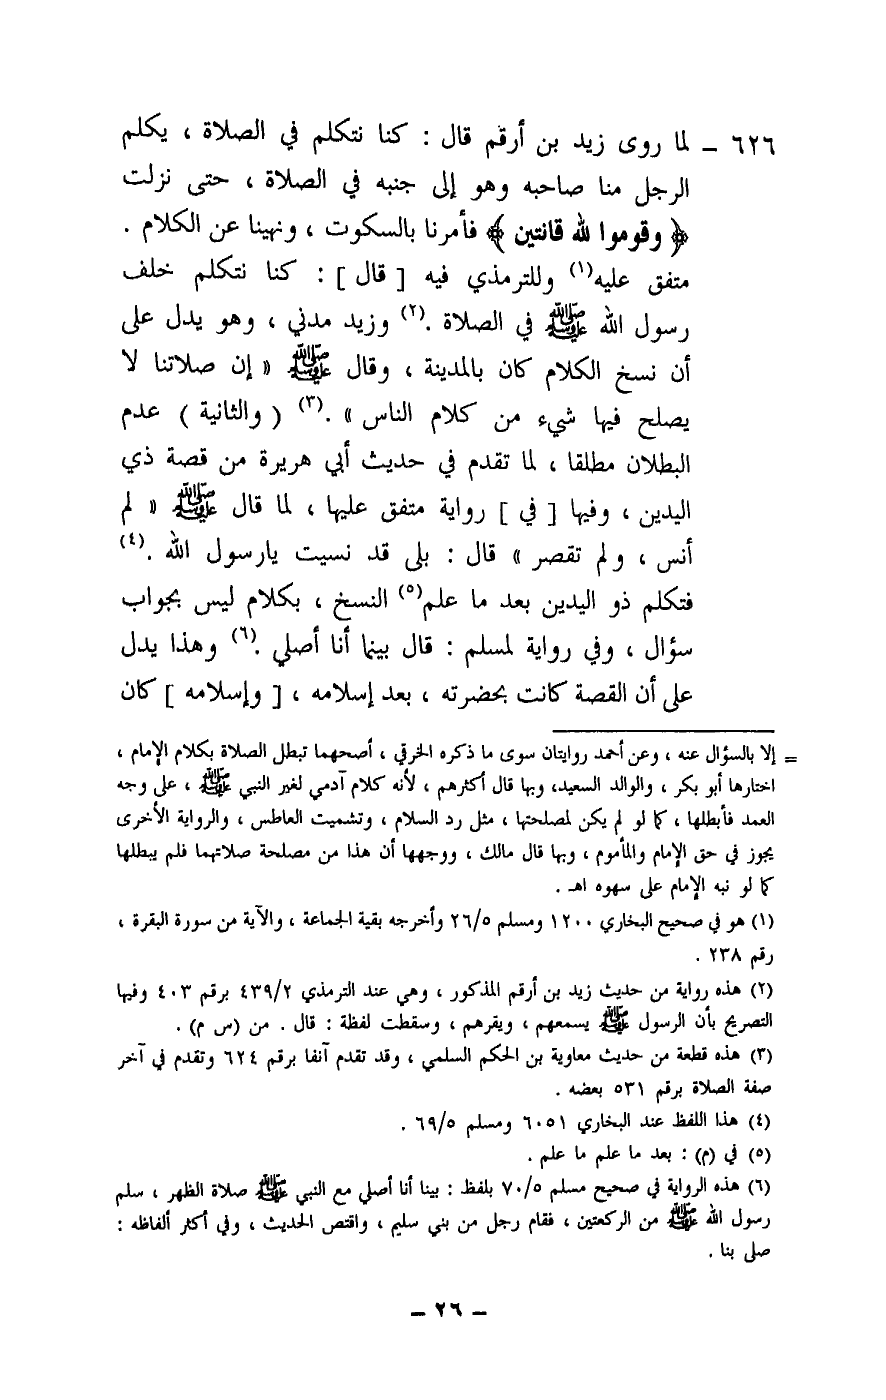 ٦٢٦ – لما روى زيد بن أرقم قال : كنا نتكلم في الصلاة ، يكلم
الرجل منا صاحبه وهو إلى جنبه في الصلاة ، حتى نزلت
﴿ وقوموا لله قانتين ﴾ فأمرنا بالسكوت ، ونهينا عن الكلام .
متفق عليه(١) وللترمذي فيه [ قال ] : كنا نتكلم خلف
رسول الله ﷺ في الصلاة .(٢) وزيد مدني ، وهو يدل على
أن نسخ الكلام كان بالمدينة ، وقال ﷺ « إن صلاتنا لا
يصلح فيها شيء من كلام الناس » .(٣) ( والثانية ) عدم
البطلان مطلقا ، لما تقدم في حديث أبي هريرة من قصة ذي
اليدين ، وفيها [ في ] رواية متفق عليها ، لما قال ﷺ « لم
أنس ، ولم تقصر » قال : بلى قد نسيت يارسول الله .(٤)
فتكلم ذو اليدين بعد ما علم(٥) النسخ ، بكلام ليس بجواب
سؤال ، وفي رواية لمسلم : قال بينما أنا أصلي .(٦) وهذا يدل
على أن القصة كانت بحضرته ، بعد إسلامه ، [ وإسلامه ] كان
= إلا بالسؤال عنه ، وعن أحمد روايتان سوى ما ذكره الخرقي ، أصحهما تبطل الصلاة بكلام الإمام ،
اختارها أبو بكر ، والوالد السعيد، وبها قال أكثرهم ، لأنه كلام آدمي لغير النبي ﷺ ، على وجه
العمد فأبطلها ، كما لو لم يكن لمصلحتها ، مثل رد السلام ، وتشميت العاطس ، والرواية الأخرى
يجوز في حق الإمام والمأموم ، وبها قال مالك ، ووجهها أن هذا من مصلحة صلاتهما فلم يبطلها
كما لو نبه الإمام على سهوه اهـ .
(١) هو في صحيح البخاري ١٢٠٠ ومسلم ٢٦/٥ وأخرجه بقية الجماعة ، والآية من سورة البقرة ،
رقم ٢٣٨ .
(٢) هذه رواية من حديث زيد بن أرقم المذكور ، وهي عند الترمذي ٤٣٩/٢ برقم ٤٠٣ وفيها
التصريح بأن الرسول ﷺ يسمعهم ، ويقرهم ، وسقطت لفظة : قال . من (س م) .
(٣) هذه قطعة من حديث معاوية بن الحكم السلمي ، وقد تقدم آنفا برقم ٦٢٤ وتقدم في آخر
صفة الصلاة برقم ٥٣١ بعضه .
(٤) هذا اللفظ عند البخاري ٦٠٥١ ومسلم ٦٩/٥ .
(٥) في (م) : بعد ما علم ما علم .
(٦) هذه الرواية في صحيح مسلم ٧٠/٥ بلفظ : بينا أنا أصلي مع النبي ﷺ صلاة الظهر ، سلم
رسول الله ﷺ من الركعتين ، فقام رجل من بني سليم ، واقتص الحديث ، وفي أكثر ألفاظه :
صلى بنا .
– ٢٦ –